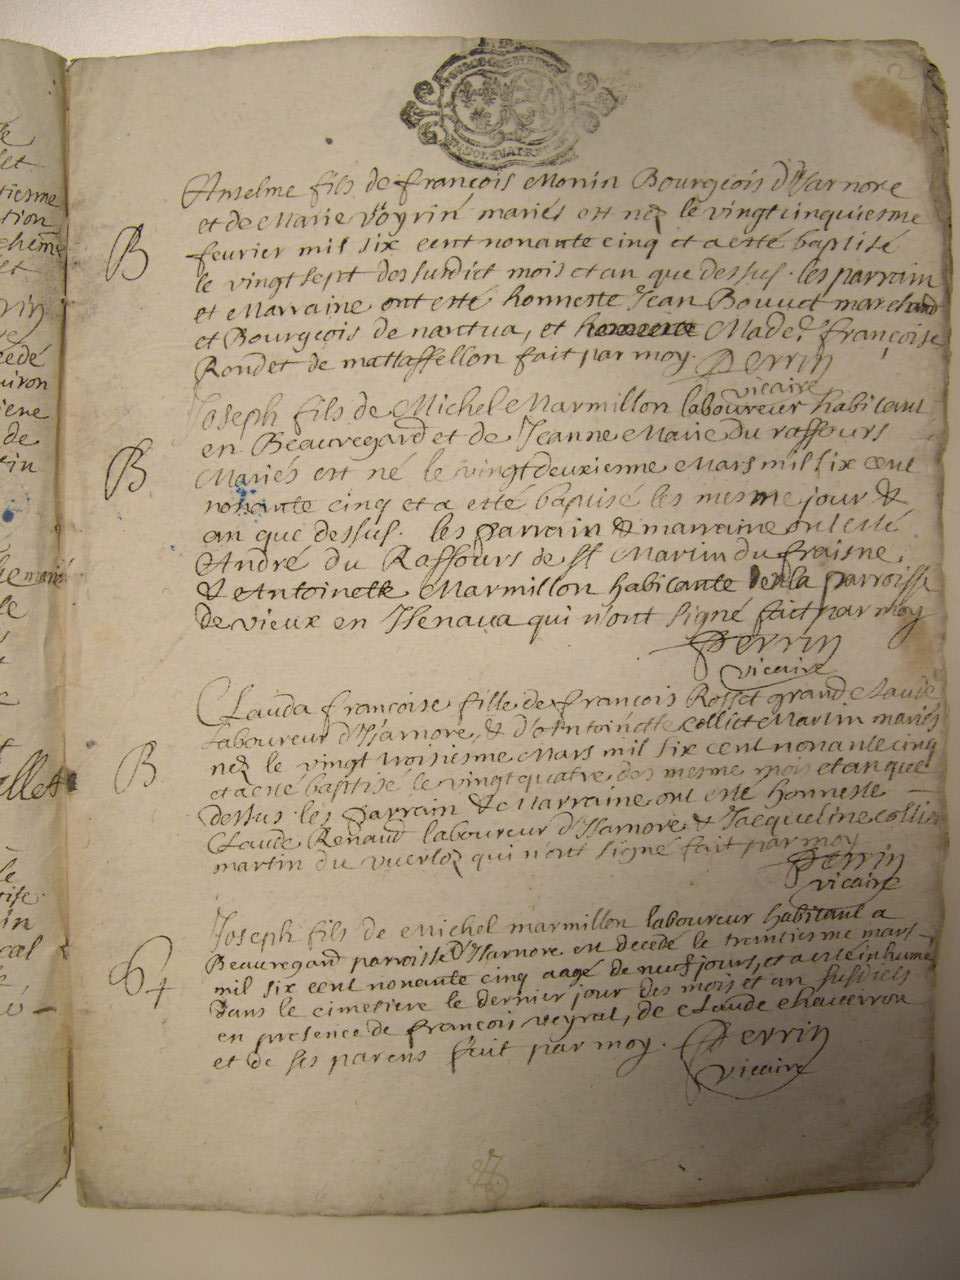 Anselme fils de françois Monin Bourgeois d'Isarnore
et de Marie Voyrin mariés est nez le vingtcinquiesme
fevrier mil six cent nonante cinq et a esté baptisé
le vingt sept dessusdict mois et an que dessus. les parrain
et Marraine ont esté honneste Jean Bouvet marchand
et Bourgeois de nantua, et Made. françoise
Rondet de mattaffellon fait par moy. Perrin
vicaire
B
Joseph fils de Michel Marmillon laboureur habitant
en Beauregard et de Jeanne Marie du raffours
Mariés est né le vingtdeuxienne Mars mil six cent
nonante cinq et a esté baptisé les mesme jour &
an que dessus. les Parrain & marraine ont esté
André du Raffours de St Martin du fraisne,
& Antoinette Marmillon habitante de la parroisse
de vieux en Isenava qui n'ont signé fait par moy
Perrin
vicaire
B
Clauda françoise fille de françois Rosset grand Claude
Laboureur d'Isarnore, & d'Antoinette collict Martin mariés
nez le vingt troisiesme Mars mil six cent nonante cinq
et a esté baptisé le vingt quatre des mesme mois et an que
dessus. les Parrain & Marraine ont esté honneste
Claude Renaud laboureur d'Isarnore & Jacqueline collict
martin du qui n'ont signé fait par moy
Perrin
vicaire
B
Joseph fils de Michel marmillon laboureur habitant a
Beauregard parroisse d'Isarnore est decedé le trentiesme mars
mil six cent nonante cinq aagé de neuf jours, et a esté inhumé
dans le cimetiere le dernier jour des mois et an susdicts
en presence de françois veyrat, de Claude chaveiron
et de ses parens fait par moy. Perrin
vicaire